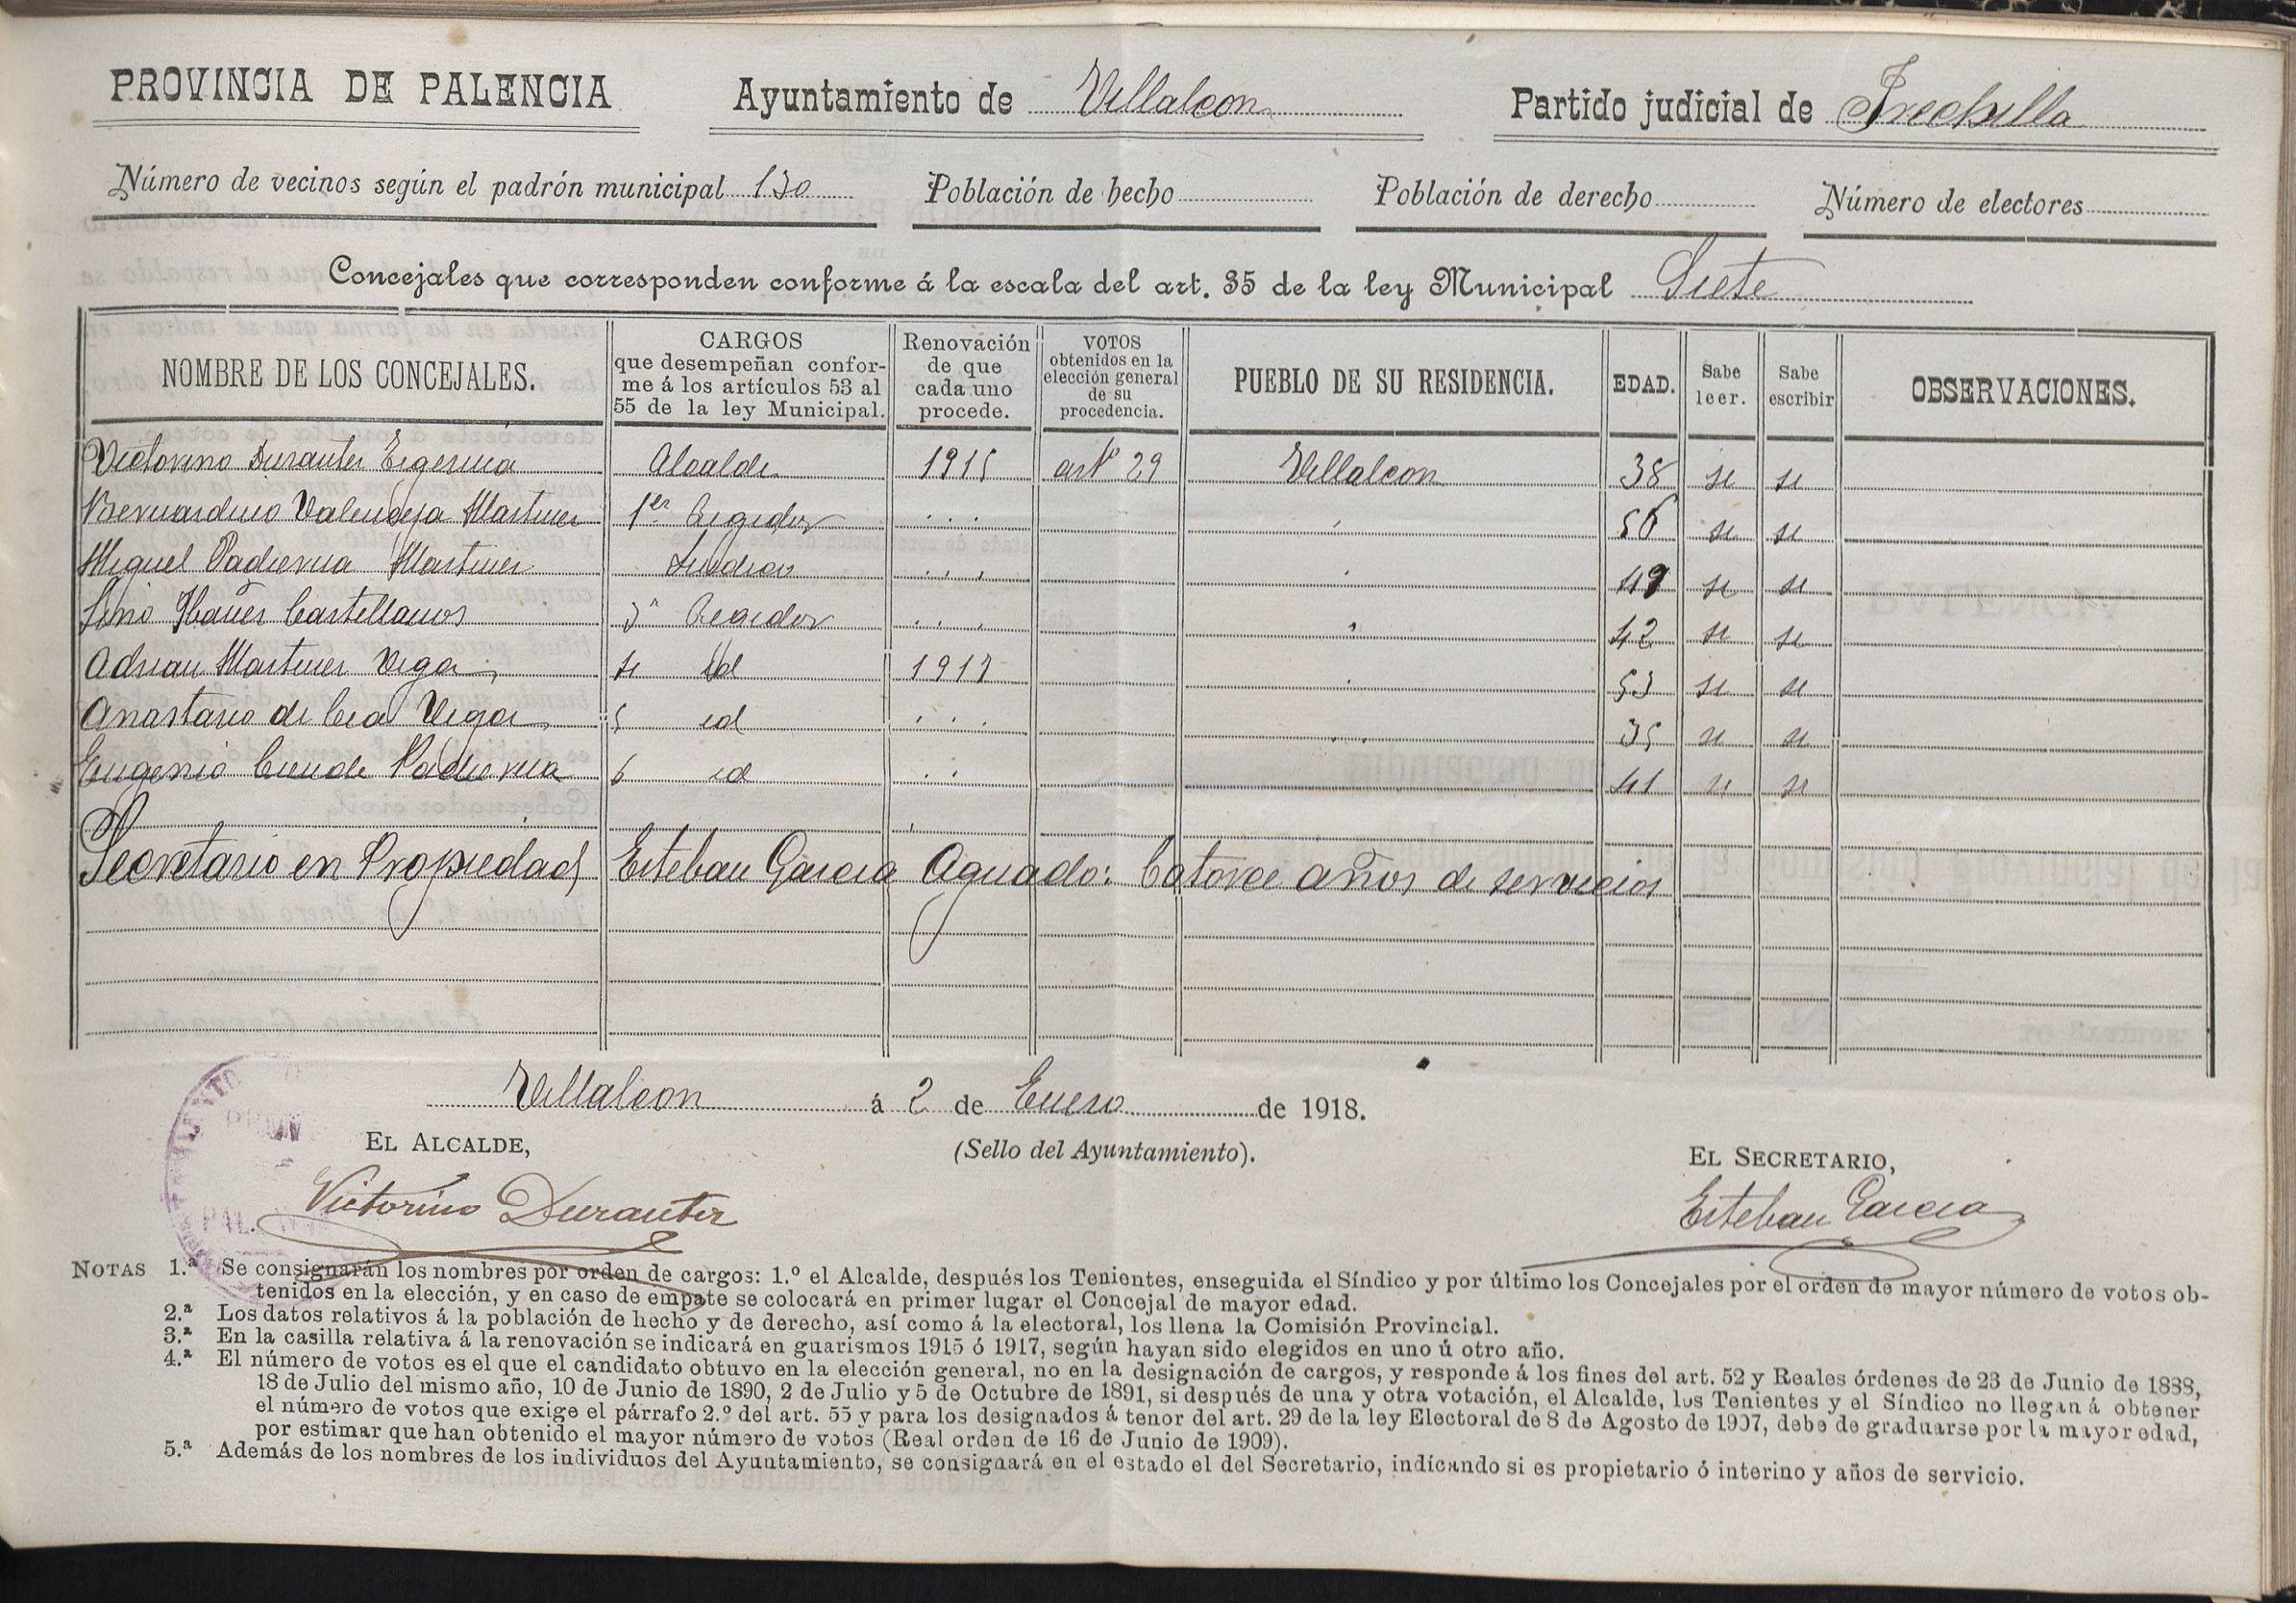 PROVINCIA DE PALENCIA Ayuntamiento de Villalcon Partido judicial de Frechilla
Número de vecinos según el padrón municipal 130 Población de hecho Población de derecho Número de electores
Concejales que corresponden conforme á la escala del art. 35 de la ley Municipal Siete
NOMBRE DE LOS CONCEJALES. CARGOS que desempeñan conforme á los artículos 53 al 55 de la ley Municipal. Renovación de que cada uno procede. VOTOS obtenidos en la elección general de su procedencia. PUEBLO DE SU RESIDENCIA. EDAD. Sabe leer. Sabe escribir OBSERVACIONES.
Victorino Durantez Alcalde 1915 artº 29 Villalcon 38 si si
Bernardino Valenceja Martinez 1er Regidor 56 si si
Miguel Padierna Martinez Sindico 49 si si
Lino Ibañez Castellanos 3º Regidor 42 si si
Adrian Martinez Vega 4 id 1917 53 si si
Anastasio de Cea Vega 5 id 35 si si
Eugenio Padierna 6 id 41 si si
Secretario en Propiedad Esteban Garcia Aguado: Catorce años de servicios
Villalcon á 2 de Enero de 1918.
EL ALCALDE, (Sello del Ayuntamiento). EL SECRETARIO,
Victorino Durantez Esteban Garcia
NOTAS 1.ª Se consignarán los nombres por orden de cargos: 1.º el Alcalde, después los Tenientes, enseguida el Síndico y por último los Concejales por el orden de mayor número de votos ob-
tenidos en la elección, y en caso de empate se colocará en primer lugar el Concejal de mayor edad.
2.ª Los datos relativos á la población de hecho y de derecho, así como á la electoral, los llena la Comisión Provincial.
3.ª En la casilla relativa á la renovación se indicará en guarismos 1915 ó 1917, según hayan sido elegidos en uno ú otro año.
4.ª El número de votos es el que el candidato obtuvo en la elección general, no en la designación de cargos, y responde á los fines del art. 52 y Reales órdenes de 23 de Junio de 1888,
18 de Julio del mismo año, 10 de Junio de 1890, 2 de Julio y 5 de Octubre de 1891, si después de una y otra votación, el Alcalde, los Tenientes y el Síndico no llegan á obtener
el número de votos que exige el párrafo 2.º del art. 55 y para los designados á tenor del art. 29 de la ley Electoral de 8 de Agosto de 1907, debe de graduarse por la mayor edad,
por estimar que han obtenido el mayor número de votos (Real orden de 16 de Junio de 1909).
5.ª Además de los nombres de los individuos del Ayuntamiento, se consignará en el estado el del Secretario, indicando si es propietario ó interino y años de servicio.